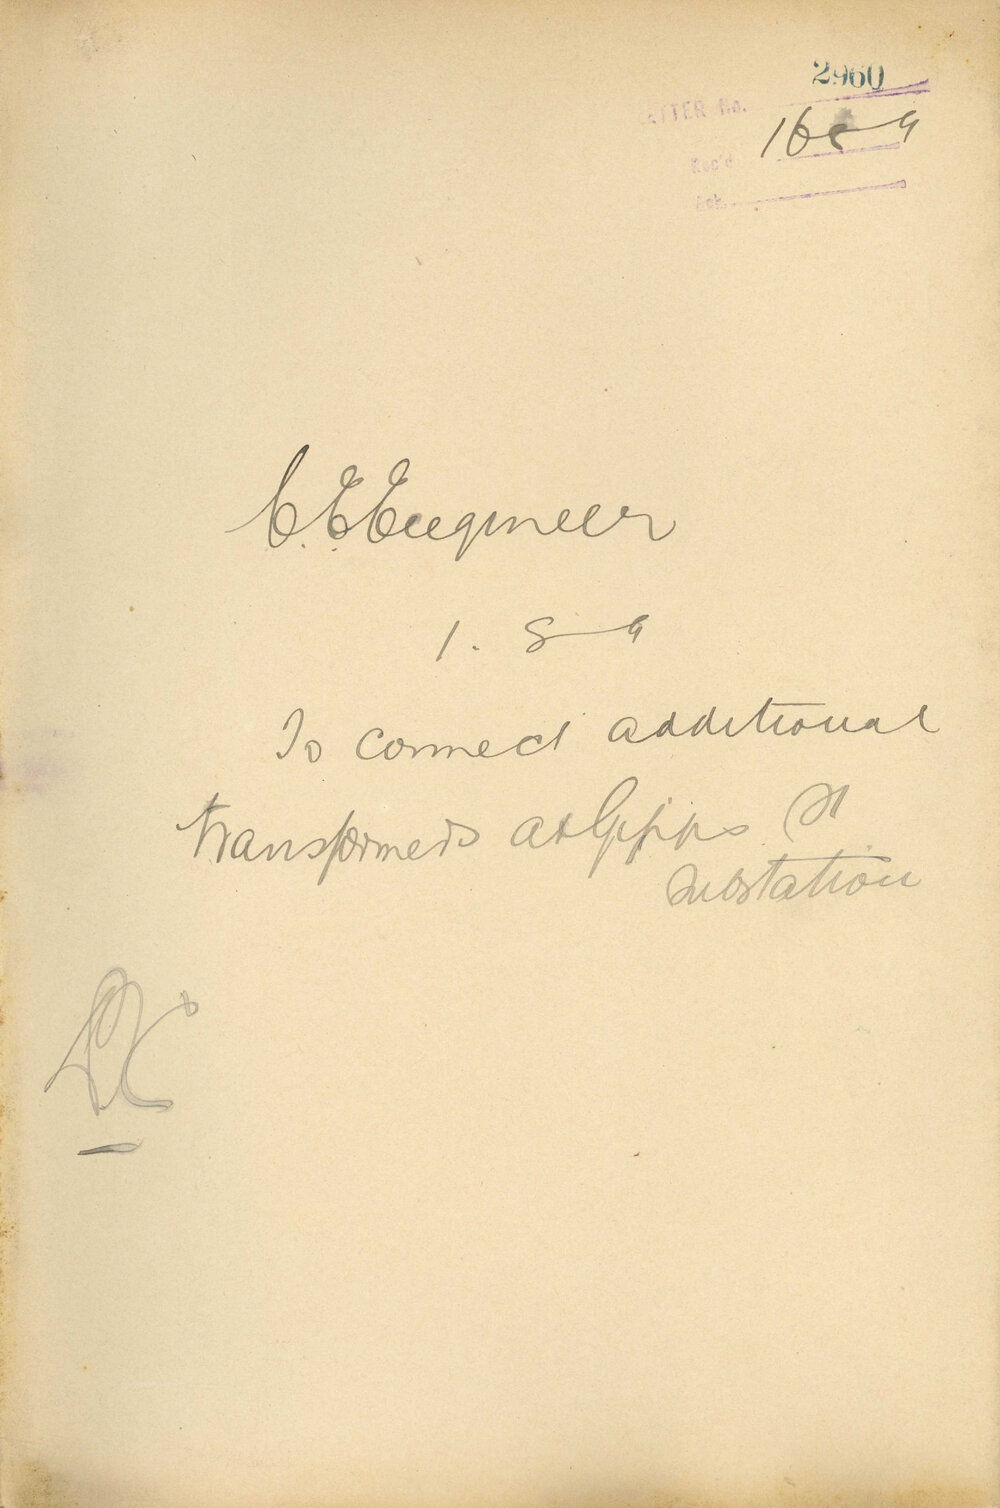 2960
LETTER No.
Rec'd
Ack.
C. E. Engineer
1. 8 - 9
To connect additional
transformers at Gipps St
substation